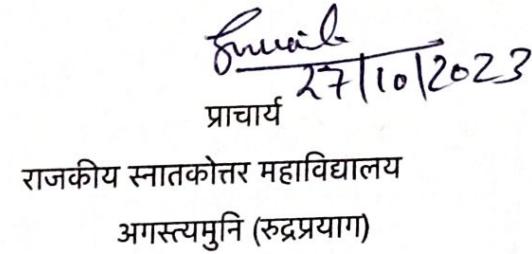 27/10/2023
प्राचार्य
राजकीय स्नातकोत्तर महाविद्यालय
अगस्त्यमुनि (रुद्रप्रयाग)